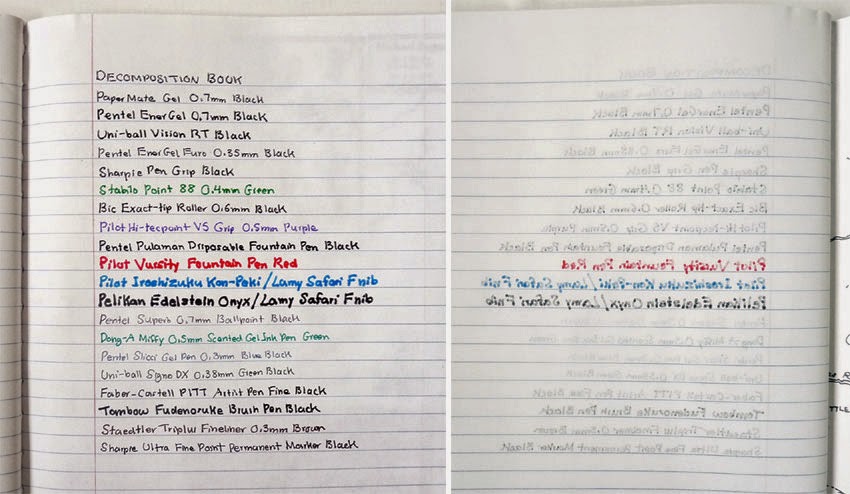 DECOMPOSITION BOOK
PaperMate Gel 0.7mm Black
Pentel EnerGel 0.7mm Black
Uni-ball Vision RT Black
Pentel EnerGel Euro 0.35mm Black
Sharpie Pen Grip Black
Stabilo Point 88 0.4mm Green
Bic Exact-tip Roller 0.6mm Black
Pilot Hi-tecpoint V5 Grip 0.5mm Purple
Pentel Pulaman Disposable Fountain Pen Black
Pilot Varsity Fountain Pen Red
Pilot Iroshizuku Kon-Peki/Lamy Safari F nib
Pelikan Edelstein Onyx/Lamy Safari F nib
Pentel Superb 0.7mm Ballpoint Black
Dong-A Miffy 0.5mm Scented Gel Ink Pen Green
Pentel Slicci Gel Pen 0.3mm Blue Black
Uni-ball Signo DX 0.38mm Green Black
Faber-Castell PITT Artist Pen Fine Black
Tombow Fudenosuke Brush Pen Black
Staedtler Triplus Fineliner 0.3mm Brown
Sharpie Ultra Fine Point Permanent Marker Black